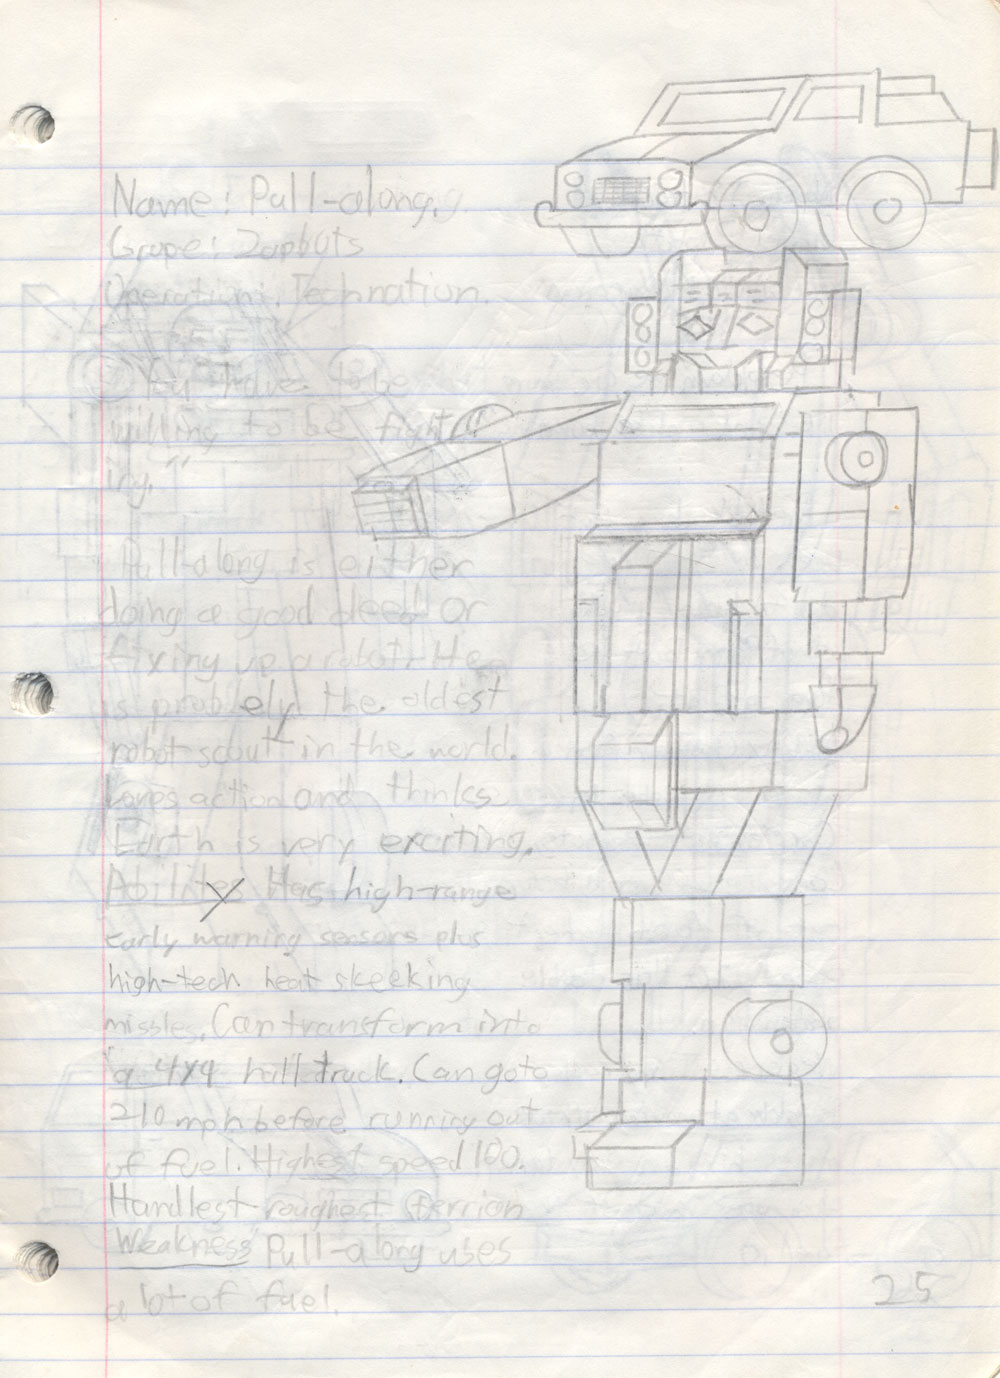 Name: Pull-along.
Groupe: Zapbuts
Operation: Technation.
"You have to be
willing to be fight
ing."
Pull-along is either
doing a good deed or
fixing up a robot. He
is problely the oldest
robot scout in the world.
Loves action and thinks
Earth is very exciting.
Abilitys Has high-range
early warning sensors plus
high-tech heat skeeking
missles. Can transform into
a 4x4 hill truck. Can go to
210 mph before running out
of fuel. Highest speed 100.
Handlest roughest terrion
Weakness: Pull-along uses
a lot of fuel.
25